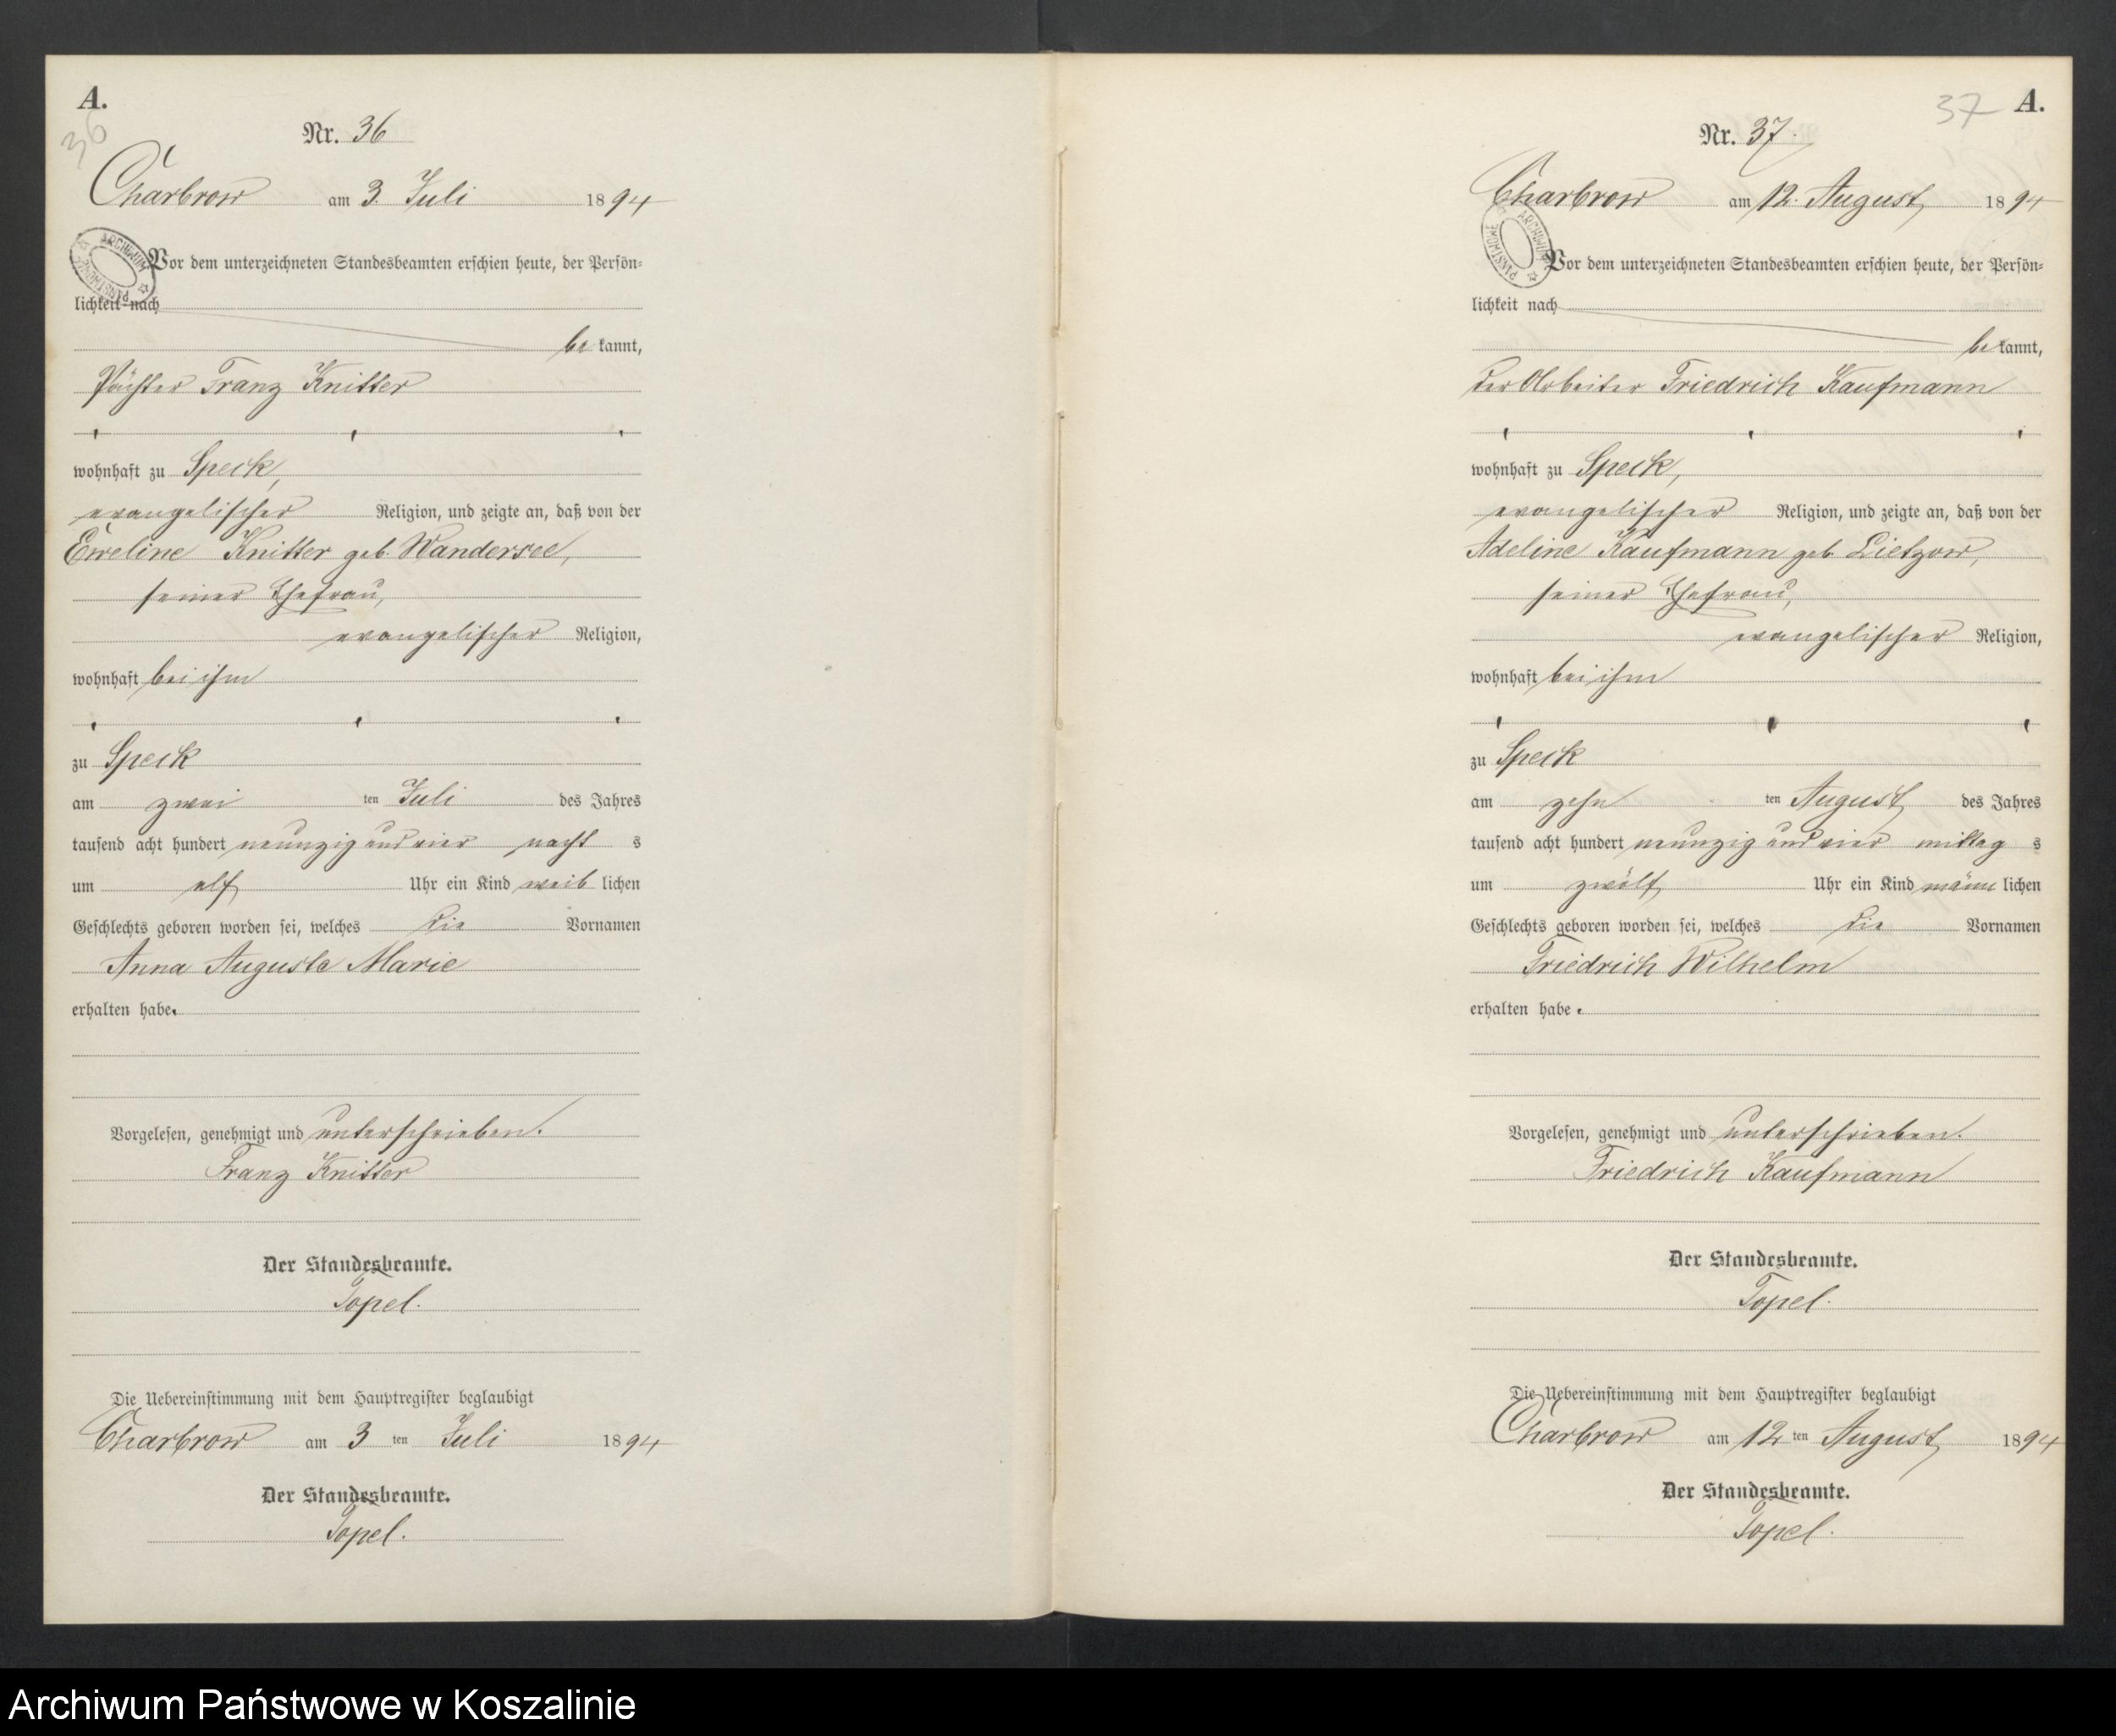 A.
36
Nr. 36
Charbrow am 3. Juli 1894
ARCHIWUM PAŃSTWOWE
Vor dem unterzeichneten Standesbeamten erschien heute, der Persön-
lichkeit nach
be kannt,
Pächter Franz Knitter
wohnhaft zu Speck,
evangelischer Religion, und zeigte an, daß von der
Eweline Knitter geb. Wandersee,
seiner Ehefrau,
evangelischer Religion,
wohnhaft bei ihm
zu Speck
am zwei ten Juli des Jahres
tausend acht hundert neunzig und vier nacht s
um elf Uhr ein Kind weib lichen
Geschlechts geboren worden sei, welches die Vornamen
Anna Auguste Marie
erhalten habe.
Vorgelesen, genehmigt und unterschrieben.
Franz Knitter
Der Standesbeamte.
Topel.
Die Uebereinstimmung mit dem Hauptregister beglaubigt
Charbrow am 3 ten Juli 1894
Der Standesbeamte.
Topel.
37 A.
Nr. 37.
Charbrow am 12. August 1894
ARCHIWUM PAŃSTWOWE
Vor dem unterzeichneten Standesbeamten erschien heute, der Persön-
lichkeit nach
be kannt,
der Arbeiter Friedrich Kaufmann
wohnhaft zu Speck,
evangelischer Religion, und zeigte an, daß von der
Adeline Kaufmann geb. Lietzow,
seiner Ehefrau,
evangelischer Religion,
wohnhaft bei ihm
zu Speck
am zehn ten August des Jahres
tausend acht hundert neunzig und vier mittag s
um zwölf Uhr ein Kind männ lichen
Geschlechts geboren worden sei, welches die Vornamen
Friedrich Wilhelm
erhalten habe.
Vorgelesen, genehmigt und unterschrieben.
Friedrich Kaufmann
Der Standesbeamte.
Topel.
Die Uebereinstimmung mit dem Hauptregister beglaubigt
Charbrow am 12 ten August 1894
Der Standesbeamte.
Topel.
Archiwum Państwowe w Koszalinie